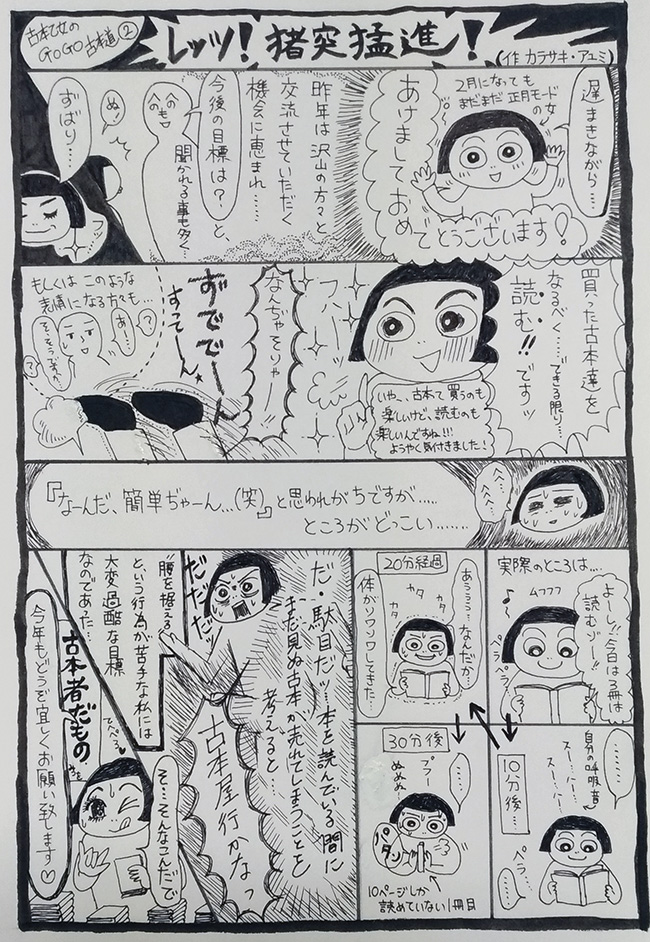 古本乙女の
GOGO古本道②
レッツ!猪突猛進!
(作 カラサキ・アユミ)
遅まきながら…
2月になっても
まだまだ正月モード
の女
あけまして
おめでとうございます!
昨年は沢山の方々と
交流させていただく
機会に恵まれ……
今後の目標は?と
聞かれる事も多く…
ぬっ
ずばり…
買った古本達を
なるべく……できる限り…
読む!!ですッ
いや、古本て買うのも
楽しいけど、読むのも
楽しいんですね!!!
ようやく気付きました!
なんぢゃそりゃー
ずでででーん
すってーん
もしくはこのような
表情になる方々も…
あ…
そ、そうですか…
『なーんだ、簡単ぢゃーん…(笑)』と思われがちですが……
ところがどっこい………
実際のところは…
よーし!!今日は3冊は
読むゾー!!
ムフフフ
ペラ
10分後…
……
自分の呼吸音
スー…ハー…
スー…ハー…
ペラ…
20分経過
あううう…なんだか…
体がソワソワしてきた…
カタ
カタ
カタ
30分後
……
プラー
ぬぬぬ
パタン
10ページしか
読めていない1冊目
だ・駄目だッ…本を読んでいる間に
まだ見ぬ古本が売れてしまうことを
考えると…
古本屋行かなっ
だだだだッ
"腰を据える"
という行為が苦手な私には
大変過酷な目標
なのであた…
そ…そんなこんなで
古本者だもの
てへぺろ♥
今年もどうぞ宜しくお願い致します♡